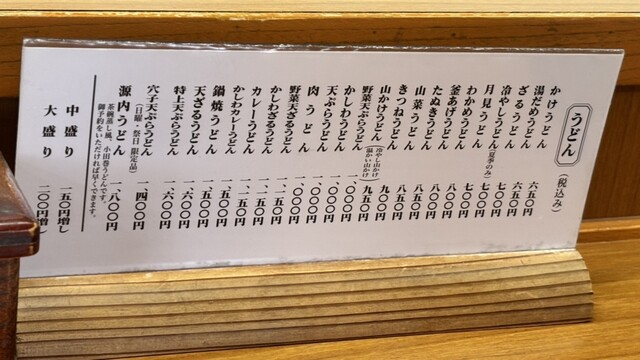 うどん
(税込み)
かけうどん 六五〇円
湯だめうどん 六五〇円
ざるうどん 六五〇円
冷やしうどん(夏季のみ) 七〇〇円
月見うどん 七〇〇円
わかめうどん 七〇〇円
釜あげうどん 八〇〇円
たぬきうどん 八五〇円
きつねうどん 八五〇円
山菜うどん 八五〇円
山かけうどん(冷やし山かけ 温かい山かけ) 九〇〇円
野菜天ぷらうどん 九五〇円
かしわうどん 一、〇〇〇円
天ぷらうどん 一、〇〇〇円
肉うどん 一、〇〇〇円
野菜天ざるうどん 一、〇〇〇円
かしわざるうどん 一、一五〇円
カレーうどん 一、一五〇円
かしわカレーうどん 一、二五〇円
鍋焼うどん 一、五〇〇円
天ざるうどん 一、五〇〇円
特上天ぷらうどん 一、六〇〇円
穴子天ぷらうどん 一、四〇〇円
(日曜・祭日 限定品)
源内うどん 一、八〇〇円
茶碗蒸し風、小田巻うどんです。
御予約をいただければ早くできます。
中盛り 一五〇円増し
大盛り 二〇〇円増し